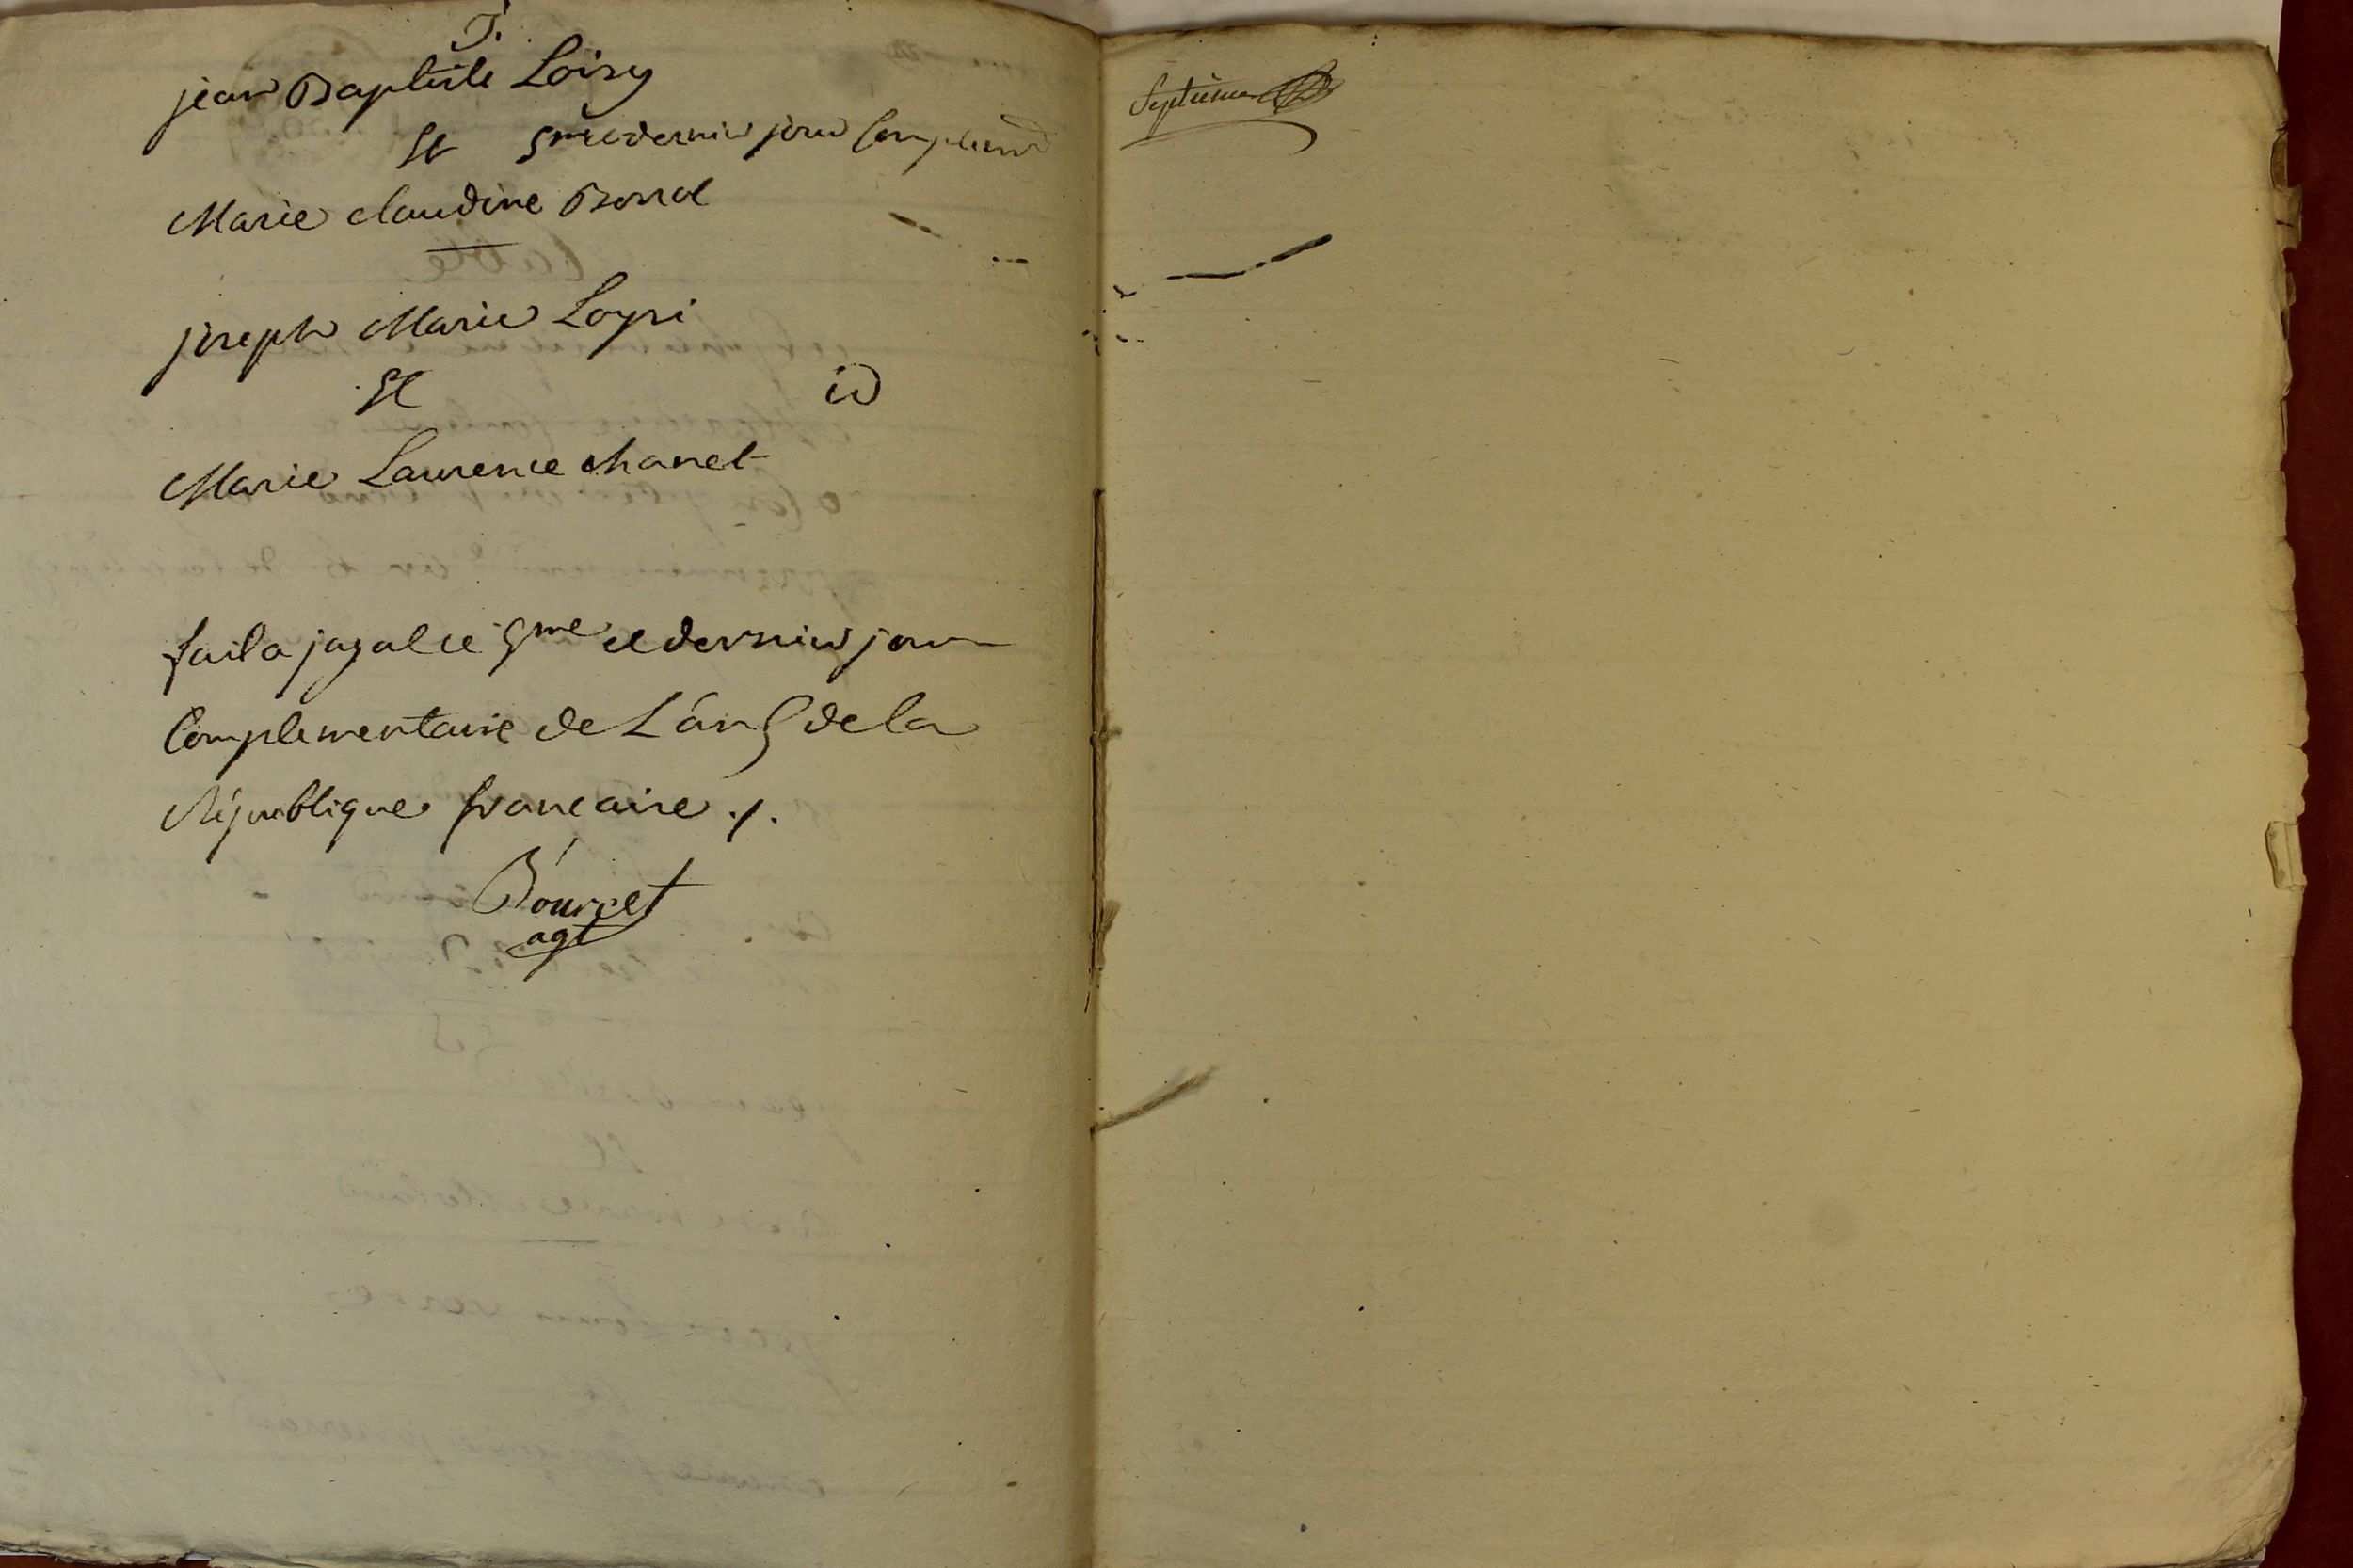 J.
jean Baptiste Loisy
et 5me et dernier jour Complem
Marie claudine Borrol
joseph Marie Loysi
et id
Marie Laurence chanet
fait a jagal ce 5me et dernier jour
Complementaire de L'an 5 de la
République francaise ./.
Bourcet
agt
Septième